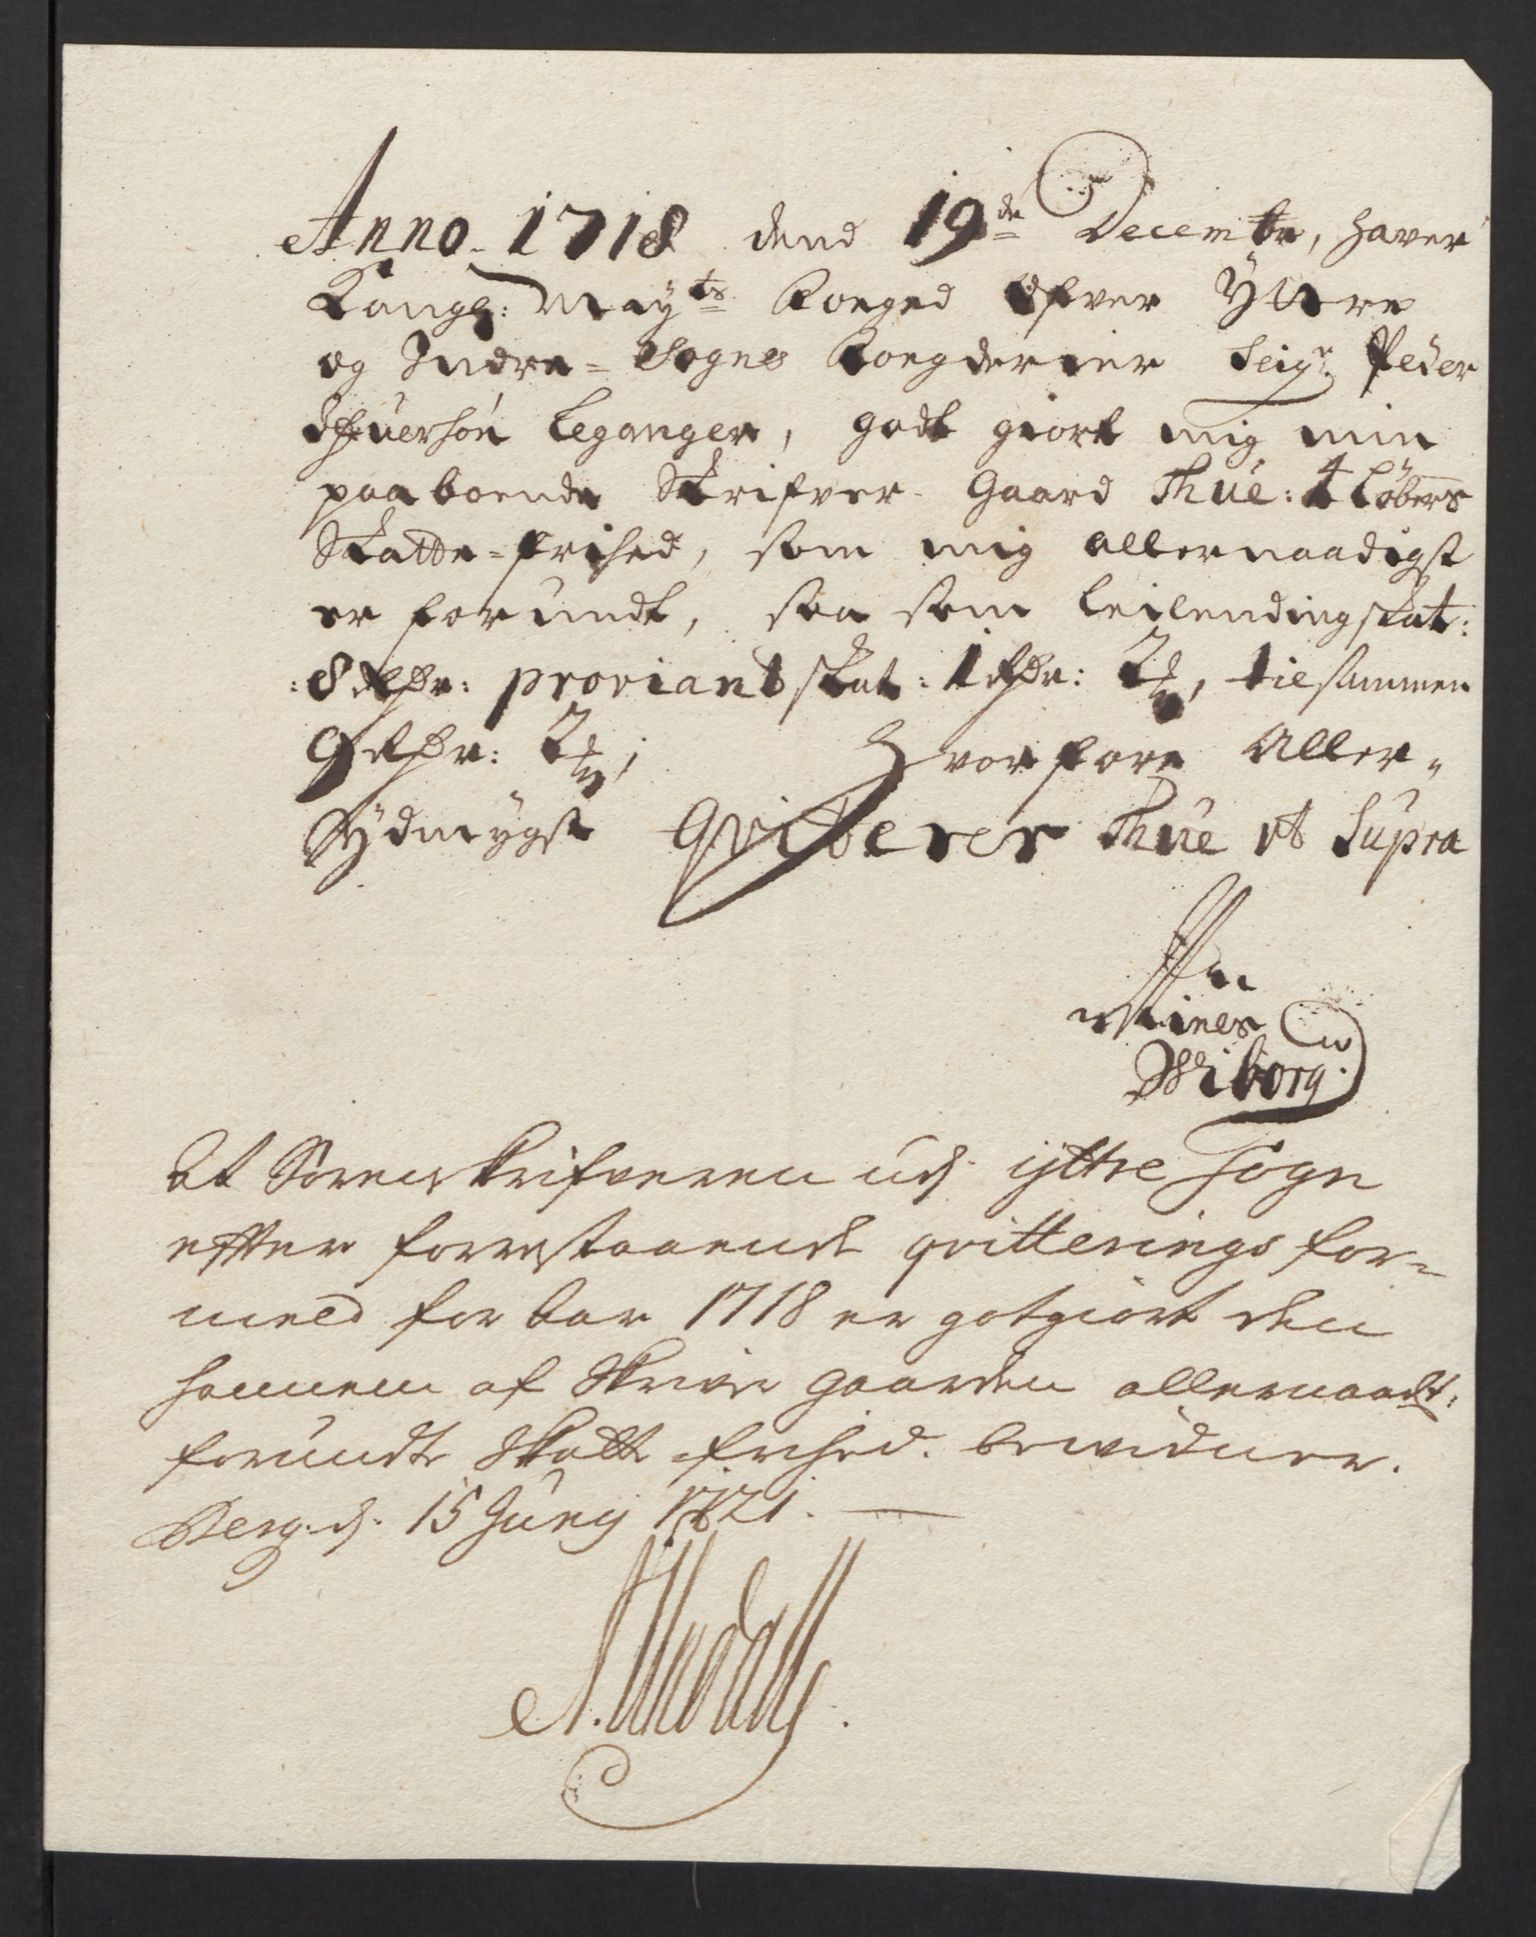 Anno 1718 dend 19de Decembr, haver
Kongl: Mayts Foeged ofver Yttre
og Indre= Sogns Foegderier Seigr Peder
Ifuersön Leganger, godt giort mig min
paaboende Skrifver Gaard Thue: 4 Löbers
Skatte=frihed, som mig allernaadigst
er forundt, saa som Leilendingskat:
:8 rdr: proviantskat: 1 rdr: 2 , tilsammen
9 rdr: 2 ; hvorfore Aller„
Ydmygst Qvitterer Thue ut Supra
Wiborg
At Sorenskrifveren udj yttre Sogn
effter forrestaaende qvitterings for¬
meld for Aar 1718 er gotgiort den
hannem af Skriver gaarden allernaadt:
forundte Skatte frihed. bevidner.
Berg. d. 15 Juny 1721.